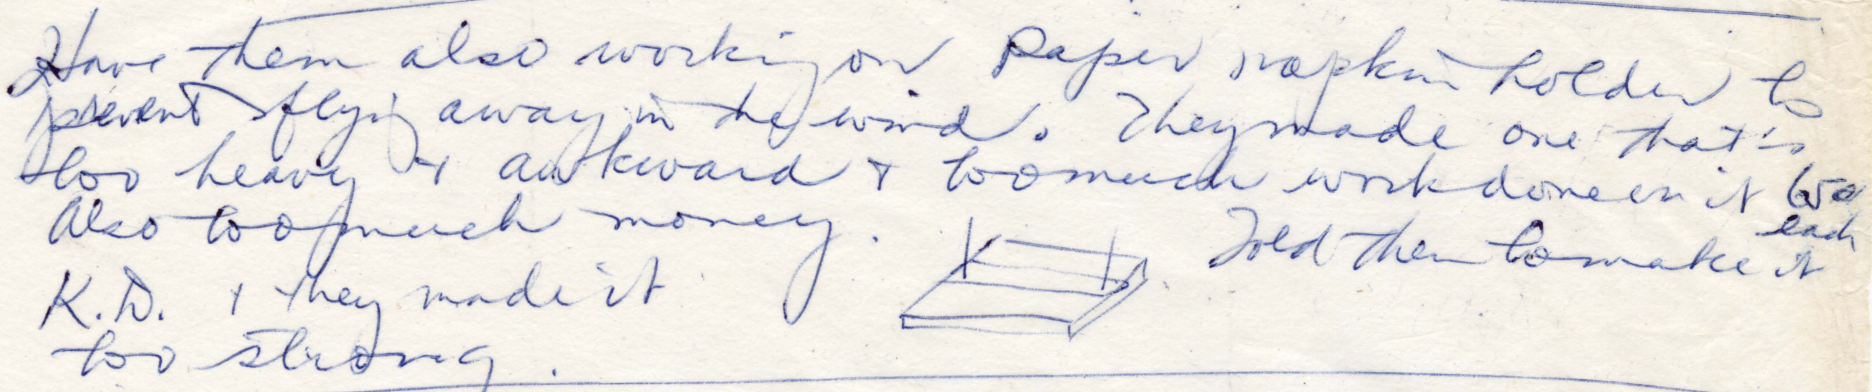 Have them also working on paper napkin holder to
prevent flying away in the wind. They made one that's
too heavy & awkward & too much work done on it
Also too much money. Told them to make it
each
K.D. & they made it
too strong.